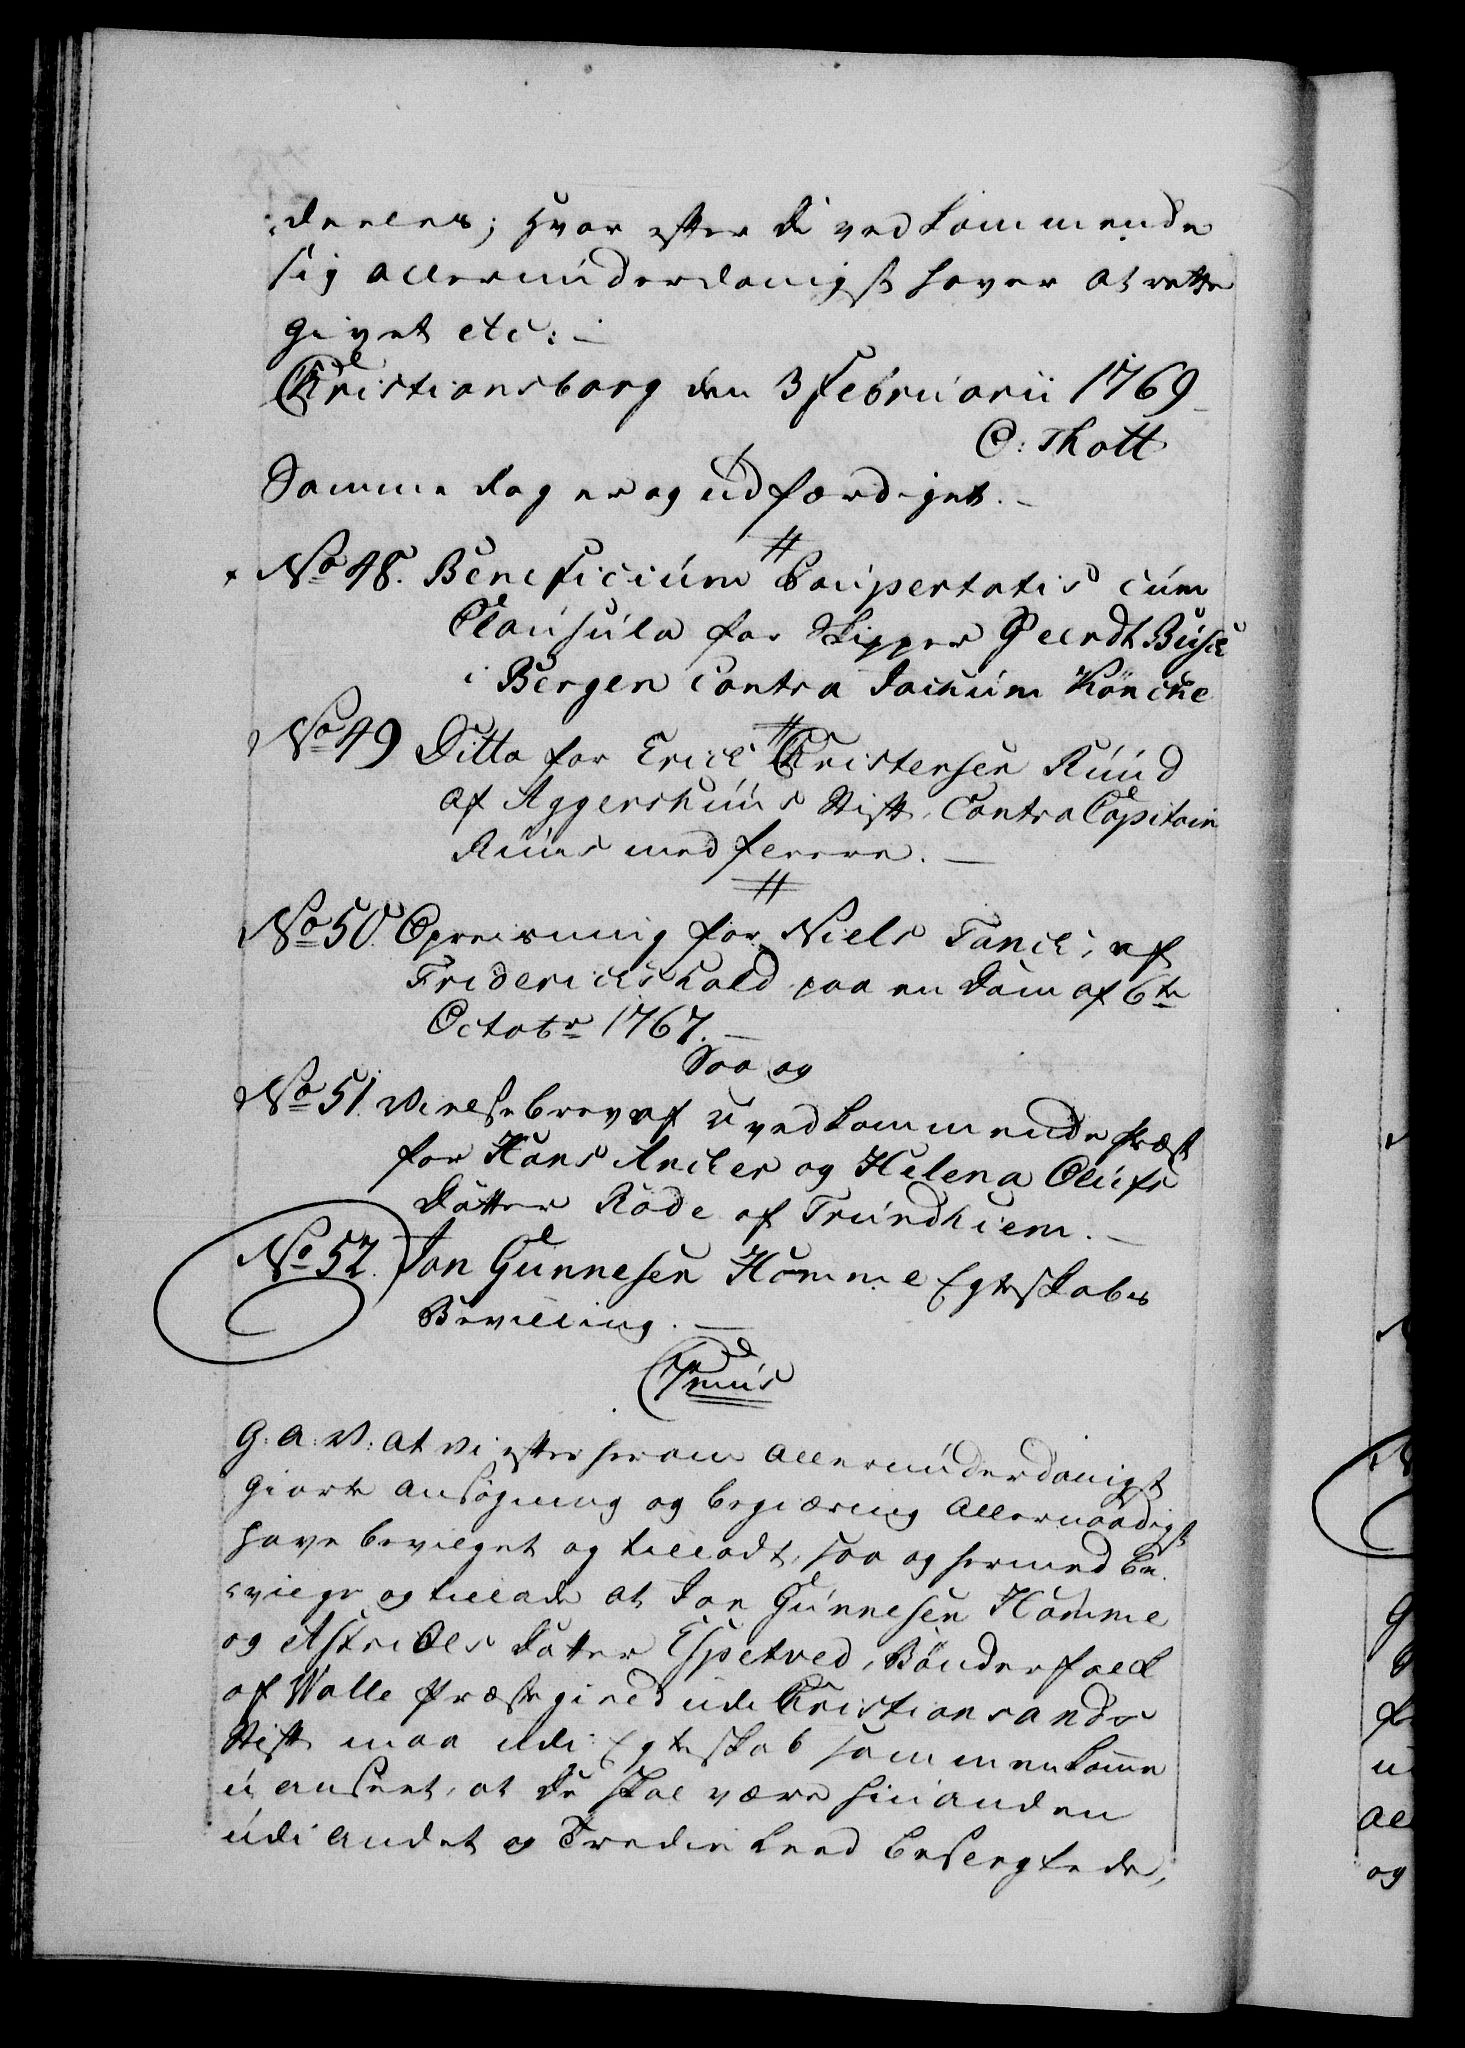 deeles; Hvor efter de vedkommende
sig allerunderdanigst haver at rette
Givet etc:
Christiansborg den 3 Februarii 1769
O: Thott
Samme dag er og udfærdiget.
No 48. Beneficium Paupertatis cum
Clausula for Skipper Geerdt Busch
i Bergen contra Jochum Köncke
No 49 Ditto for Erich Christensen Ruud
af Aggershuus Stift, Contra Capitain
Ruus med fleere.
No 50. Opreisning for Niels Tanck, af
Friderichshald paa en Dom af 6te
Octobr 1767.
Saa og
No 51. Vielsebrev af uvedkommende Præst
for Hans Ancker og Helena Olufs
Datter Rode af Trundhiem.
No 52. Jon Gunnesen Homme Egteskabs
Bevilling.
G: A: V: at Vi efter herom allerunderdanigst
giorte ansøgning og begiæring allernaadigst
have bevilget og tilladt, saa og hermed be¬
vilge og tillade at Jon Gunnesen Homme
og Astri Ols Datter Espetved, Bönderfolk
af Valle Præstegield udi Christiansands
Stift maa udi Egteskab sammenkomme
uanseet, at de skal være hinanden
udi andet og Tredie Leed beslegtede,